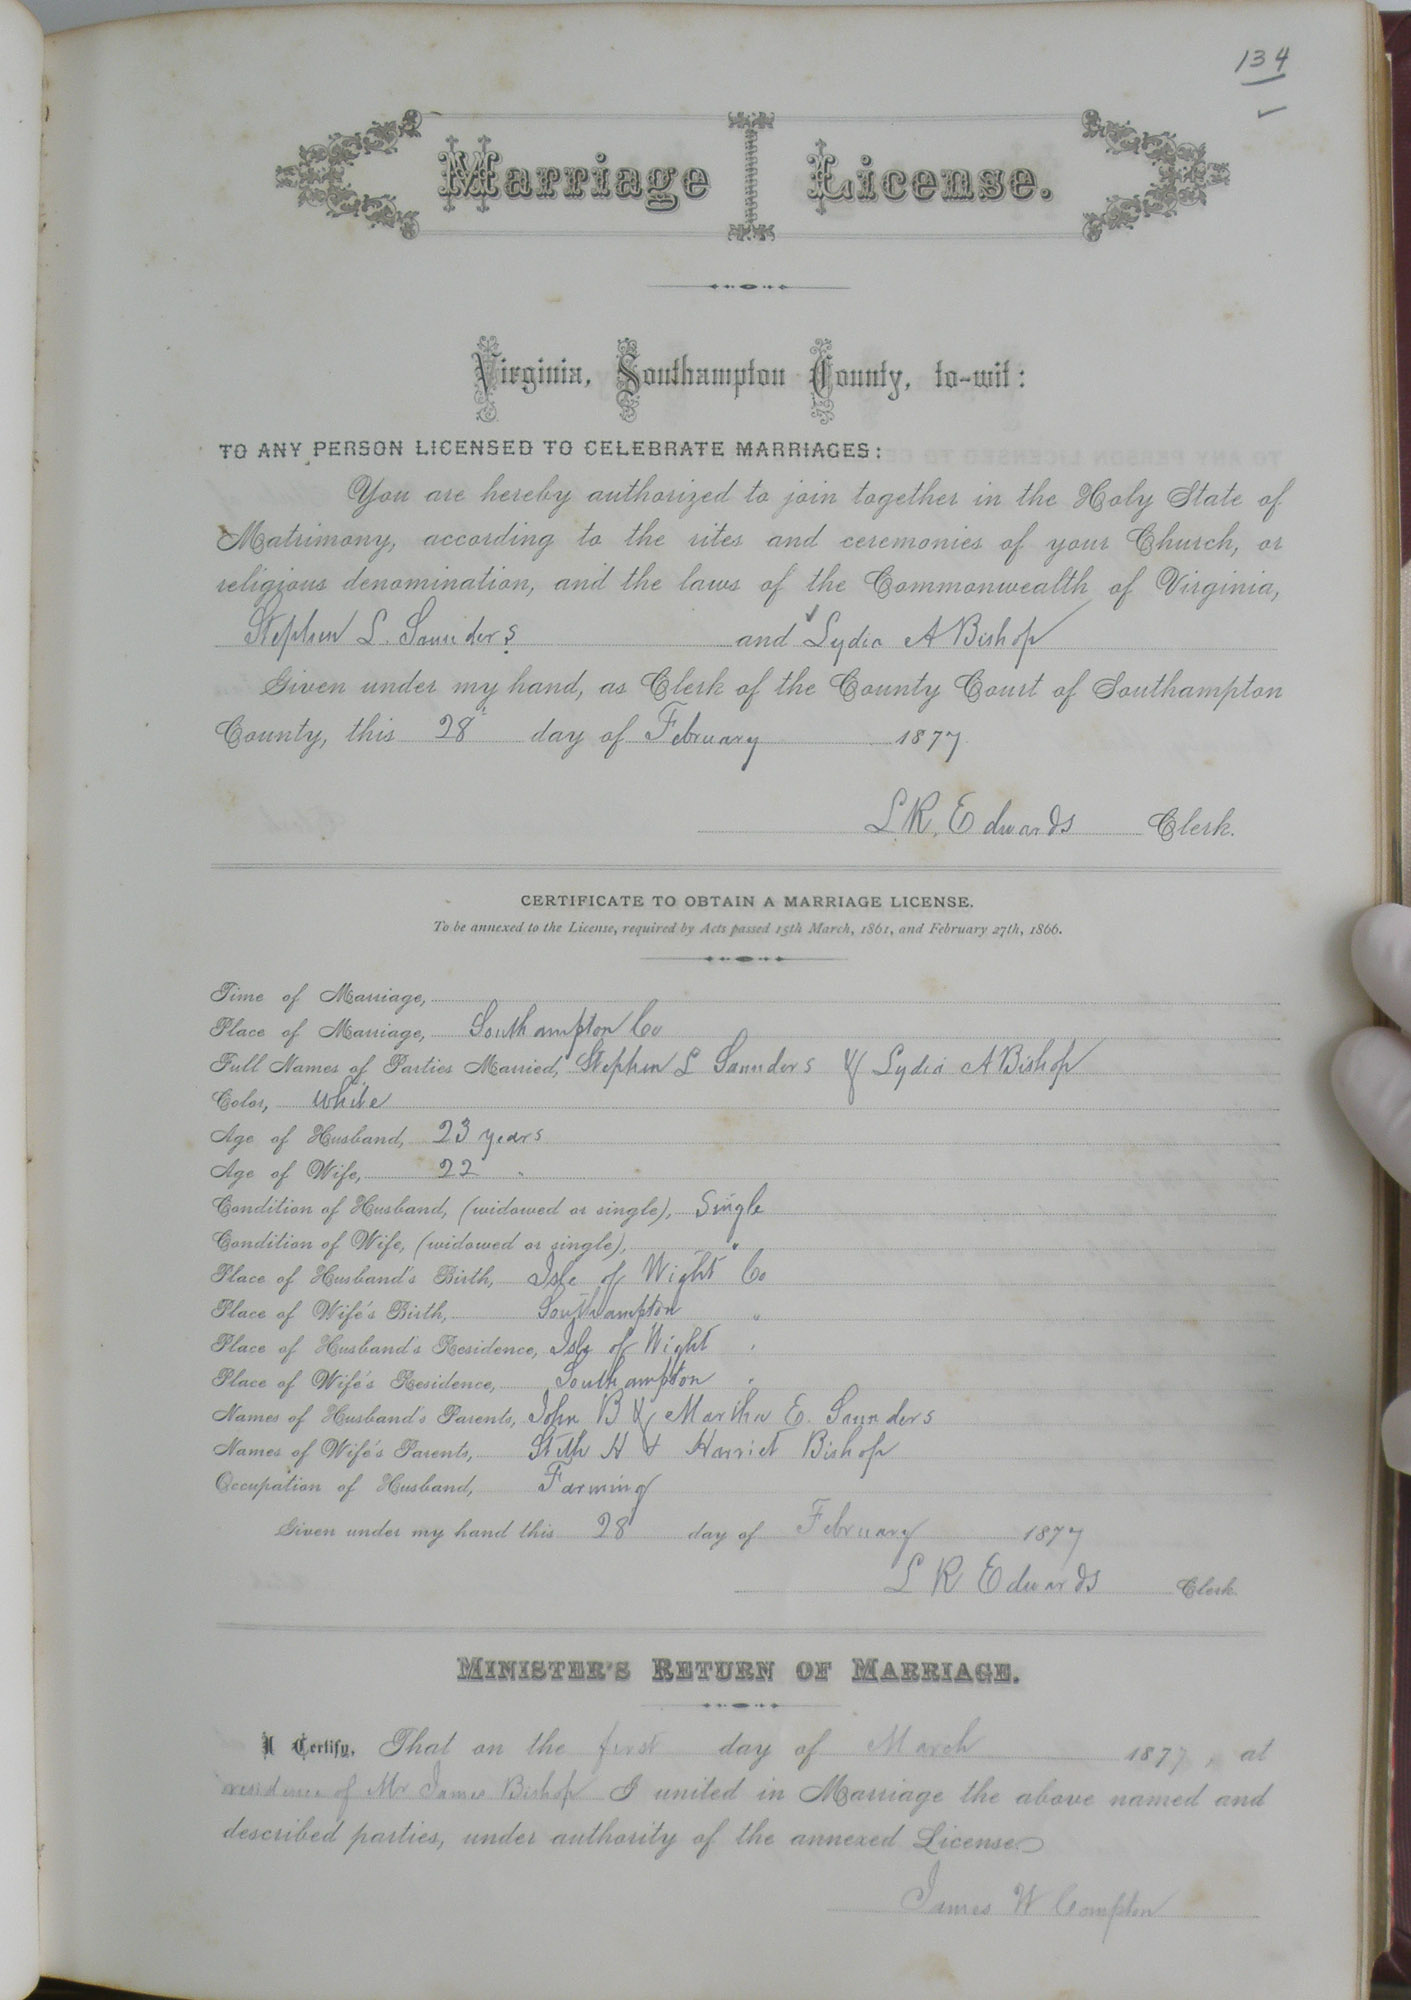 134
Marriage License.
Virginia, Southampton County, to-wit:
TO ANY PERSON LICENSED TO CELEBRATE MARRIAGES:
You are hereby authorized to join together in the Holy State of
Matrimony, according to the rites and ceremonies of your Church, or
religious denomination, and the laws of the Commonwealth of Virginia,
Stephen L. Saunders and Lydia A Bishop
Given under my hand, as Clerk of the County Court of Southampton
County, this 28 day of February 1877
L.R. Edwards Clerk.
CERTIFICATE TO OBTAIN A MARRIAGE LICENSE.
To be annexed to the License, required by Acts passed 15th March, 1861, and February 27th, 1866.
Time of Marriage,
Place of Marriage, Southampton Co
Full Names of Parties Married, Stephen L Saunders & Lydia A Bishop
Color, White
Age of Husband, 23 years
Age of Wife, 22 "
Condition of Husband, (widowed or single), Single
Condition of Wife, (widowed or single), "
Place of Husband's Birth, Isle of Wight Co
Place of Wife's Birth, Southampton "
Place of Husband's Residence, Isle of Wight "
Place of Wife's Residence, Southampton "
Names of Husband's Parents, John B & Martha E. Saunders
Names of Wife's Parents, Stith H & Harriet Bishop
Occupation of Husband, Farming
Given under my hand this 28 day of February 1877
L R Edwards Clerk.
MINISTER'S RETURN OF MARRIAGE.
I Certify, That on the first day of March 1877, at
residence of Mr James Bishop I united in Marriage the above named and
described parties, under authority of the annexed License.
James W Compton